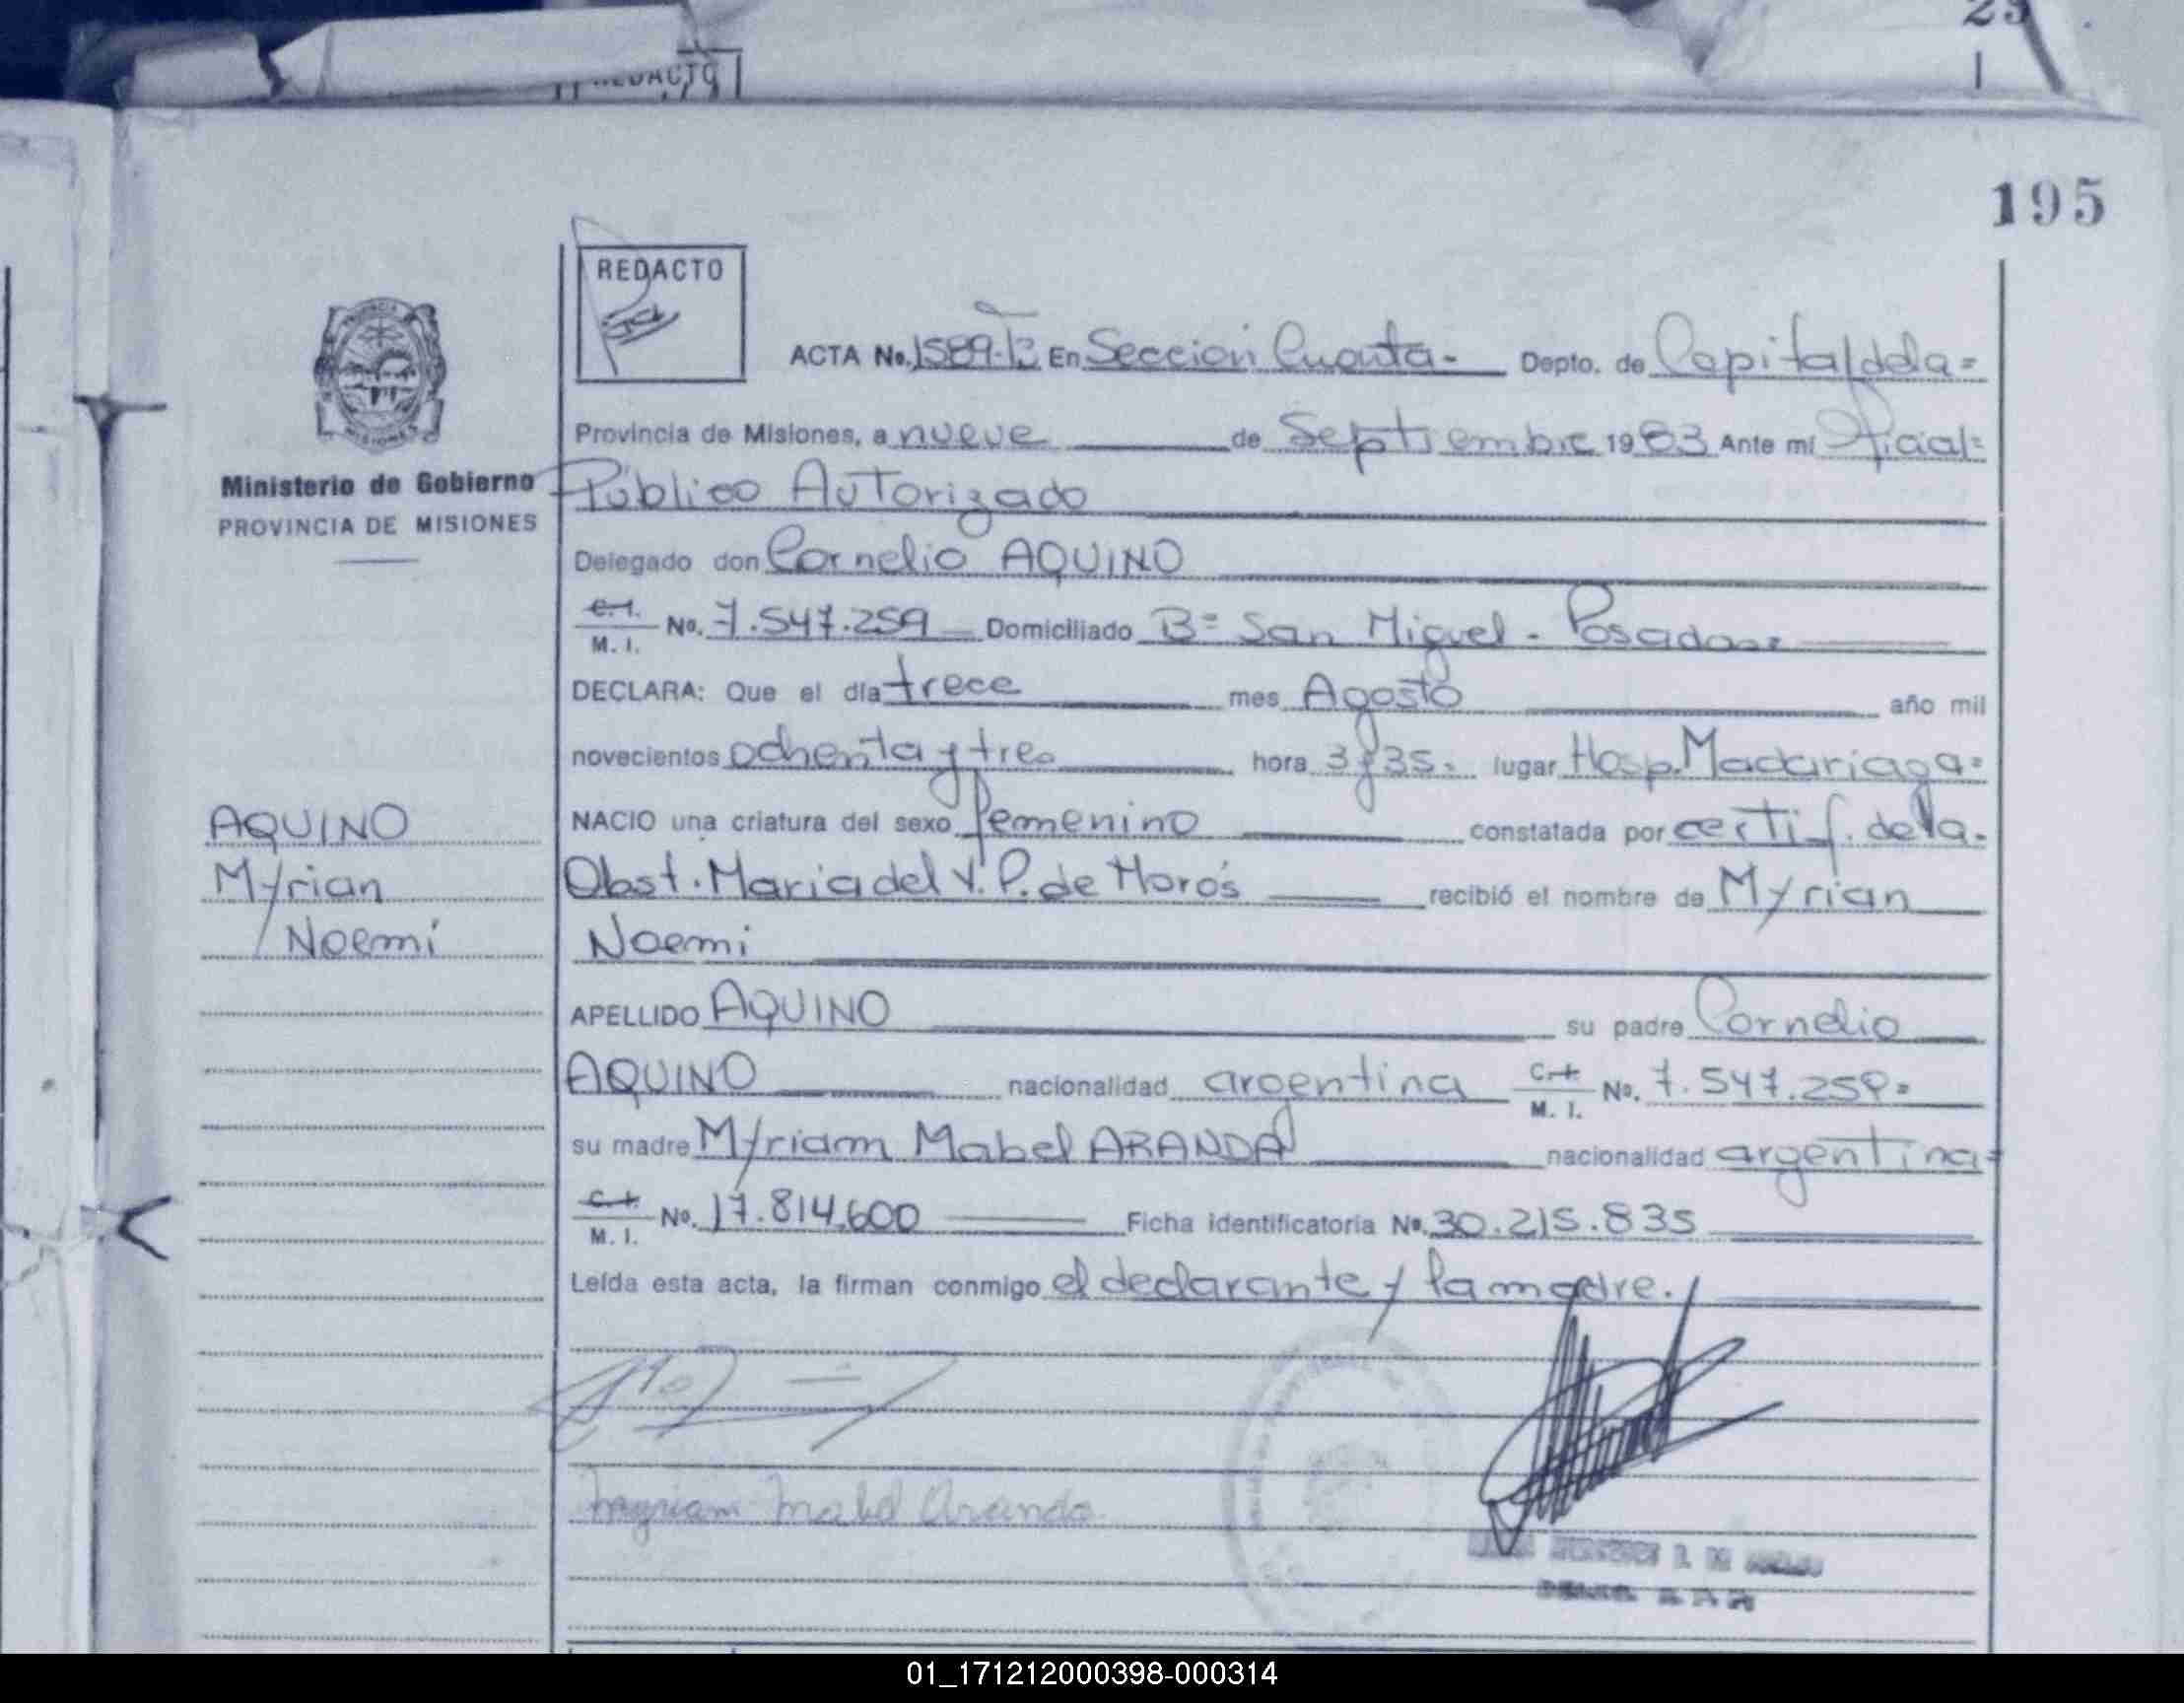 REDACTO
195
REDACTO
ACTA No. 1589-T3 En Sección Cuarta- Depto. de Capital de la=
Provincia de Misiones, a nueve de Septiembre 1983 Ante mí Oficial=
Ministerio de Gobierno
PROVINCIA DE MISIONES
Público Autorizado
Delegado don Cornelio AQUINO
C.I. M. I. No. 7.547.259 Domiciliado Bº San Miguel - Posadas=
DECLARA: Que el día trece mes Agosto año mil
novecientos ochenta y tres hora 3 y 35. lugar Hosp. Madariaga=
AQUINO
Myrian
Noemí
NACIO una criatura del sexo femenino constatada por certif. de la.
Obst. Maria del V. P. de Moros recibió el nombre de Myrian
Noemi
APELLIDO AQUINO su padre Cornelio
AQUINO nacionalidad argentina C.I. M. I. No. 7.547.259=
su madre Myriam Mabel ARANDA nacionalidad argentina=
C.I. M. I. No. 17.814.600 Ficha identificatoria No. 30.215.835
Leída esta acta, la firman conmigo el declarante y la madre.
Myriam Mabel Aranda
01_171212000398-000314